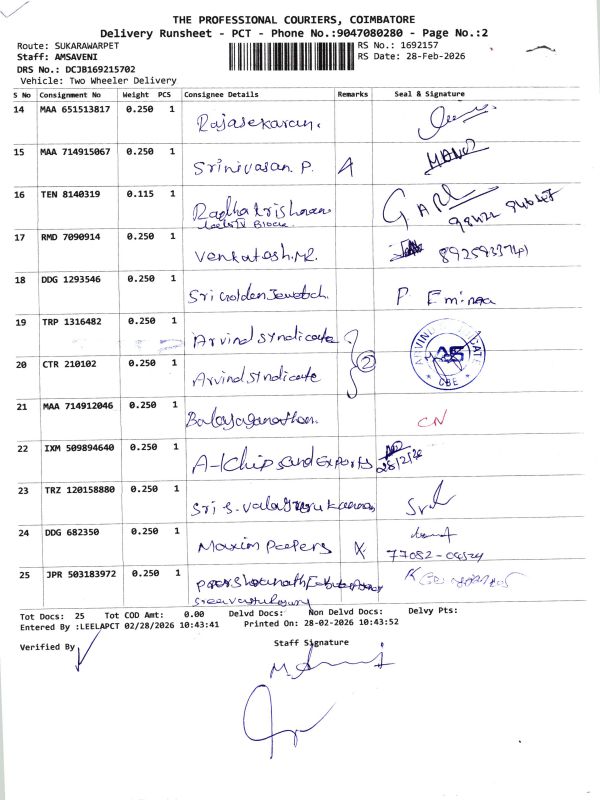 THE PROFESSIONAL COURIERS, COIMBATORE
Delivery Runsheet - PCT - Phone No.:9047080280 - Page No.:2
Route: SUKARAWARPET
RS No.: 1692157
Staff: AMSAVENI
RS Date: 28-Feb-2026
DRS No.: DCJB169215702
Vehicle: Two Wheeler Delivery
S No Consignment No Weight PCS Consignee Details Remarks Seal & Signature
14 MAA 651513817 0.250 1 Rajasekaran.
15 MAA 714915067 0.250 1 Srinivasan P. A MANO
16 TEN 8140319 0.115 1 Radha Krishnan
Block
17 RMD 7090914 0.250 1 Venkatash.MR. 8925933741
18 DDG 1293546 0.250 1 Sri Golden P
19 TRP 1316482 0.250 1 Arvind Syndicate
20 CTR 210102 0.250 1 Arvind Syndicate 2
CBE
21 MAA 714912046 0.250 1 CN
22 IXM 509894640 0.250 1 A-1 Chips and Exports 28/2/26
23 TRZ 120158880 0.250 1 Sri S.
24 DDG 682350 0.250 1 Maxim Papers
25 JPR 503183972 0.250 1
Tot Docs: 25 Tot COD Amt: 0.00 Delvd Docs: Non Delvd Docs: Delvy Pts:
Entered By :LEELAPCT 02/28/2026 10:43:41 Printed On: 28-02-2026 10:43:52
Verified By
Staff Signature